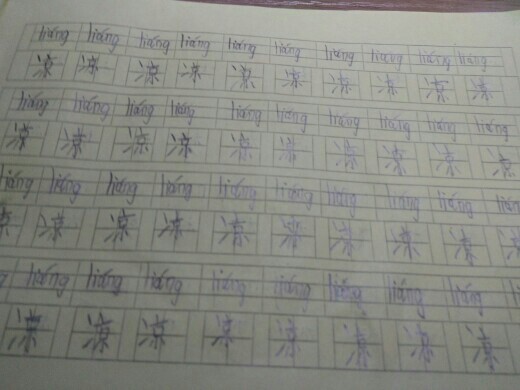 liáng liáng liáng liáng liáng liáng liáng liáng liáng liáng
凉 凉 凉 凉 凉 凉 凉 凉 凉 凉
liáng liáng liáng liáng liáng liáng liáng liáng liáng liáng
凉 凉 凉 凉 凉 凉 凉 凉 凉 凉
liáng liáng liáng liáng liáng liáng liáng liáng liáng
凉 凉 凉 凉 凉 凉 凉 凉 凉 凉
liáng liáng liáng liáng liáng liáng liáng liáng
凉 凉 凉 凉 凉 凉 凉 凉